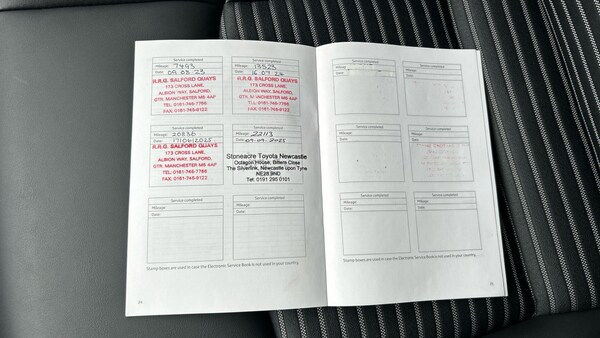 Service completed
Mileage: 7493
Date: 09.03.23
R.R.G. SALFORD QUAYS
173 CROSS LANE,
ALBION WAY, SALFORD,
GTR. MANCHESTER M5 4AP
TEL: 0161-745-7766
FAX: 0161-745-9122
Service completed
Mileage: 13523
Date: 16.07.24
R.R.G. SALFORD QUAYS
173 CROSS LANE,
ALBION WAY, SALFORD,
GTR. MANCHESTER M5 4AP
TEL: 0161-745-7766
FAX: 0161-745-9122
Service completed
Mileage: 20836
Date: 17/06/2025
R.R.G. SALFORD QUAYS
173 CROSS LANE,
ALBION WAY, SALFORD,
GTR. MANCHESTER M5 4AP
TEL: 0161-745-7766
FAX: 0161-745-9122
Service completed
Mileage: 22113
Date: 09.09.2025
Stoneacre Toyota Newcastle
Octagon House, Bitters Close
The Silverlink, Newcastle Upon Tyne
NE28 9ND
Tel: 0191 295 0101
Service completed
Mileage:
Date:
Service completed
Mileage:
Date:
Stamp boxes are used in case the Electronic Service Book is not used in your country.
Service completed
Mileage:
Date:
Service completed
Mileage:
Date:
Service completed
Mileage:
Date:
Service completed
Mileage:
Date:
Service completed
Mileage:
Date:
Service completed
Mileage:
Date:
Stamp boxes are used in case the Electronic Service Book is not used in your country.